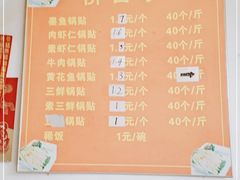 墨鱼锅贴 1.7元/个 40个/斤
肉虾仁锅贴 1.6元/个 40个/斤
素虾仁锅贴 1.5元/个 40个/斤
牛肉锅贴 1.4元/个 40个/斤
黄花鱼锅贴 1.3元/个
三鲜锅贴 1.2元/个 40个/斤
素三鲜锅贴 1元/个 40个/斤
锅贴 1元/个 40个/斤
稀饭 1元/碗